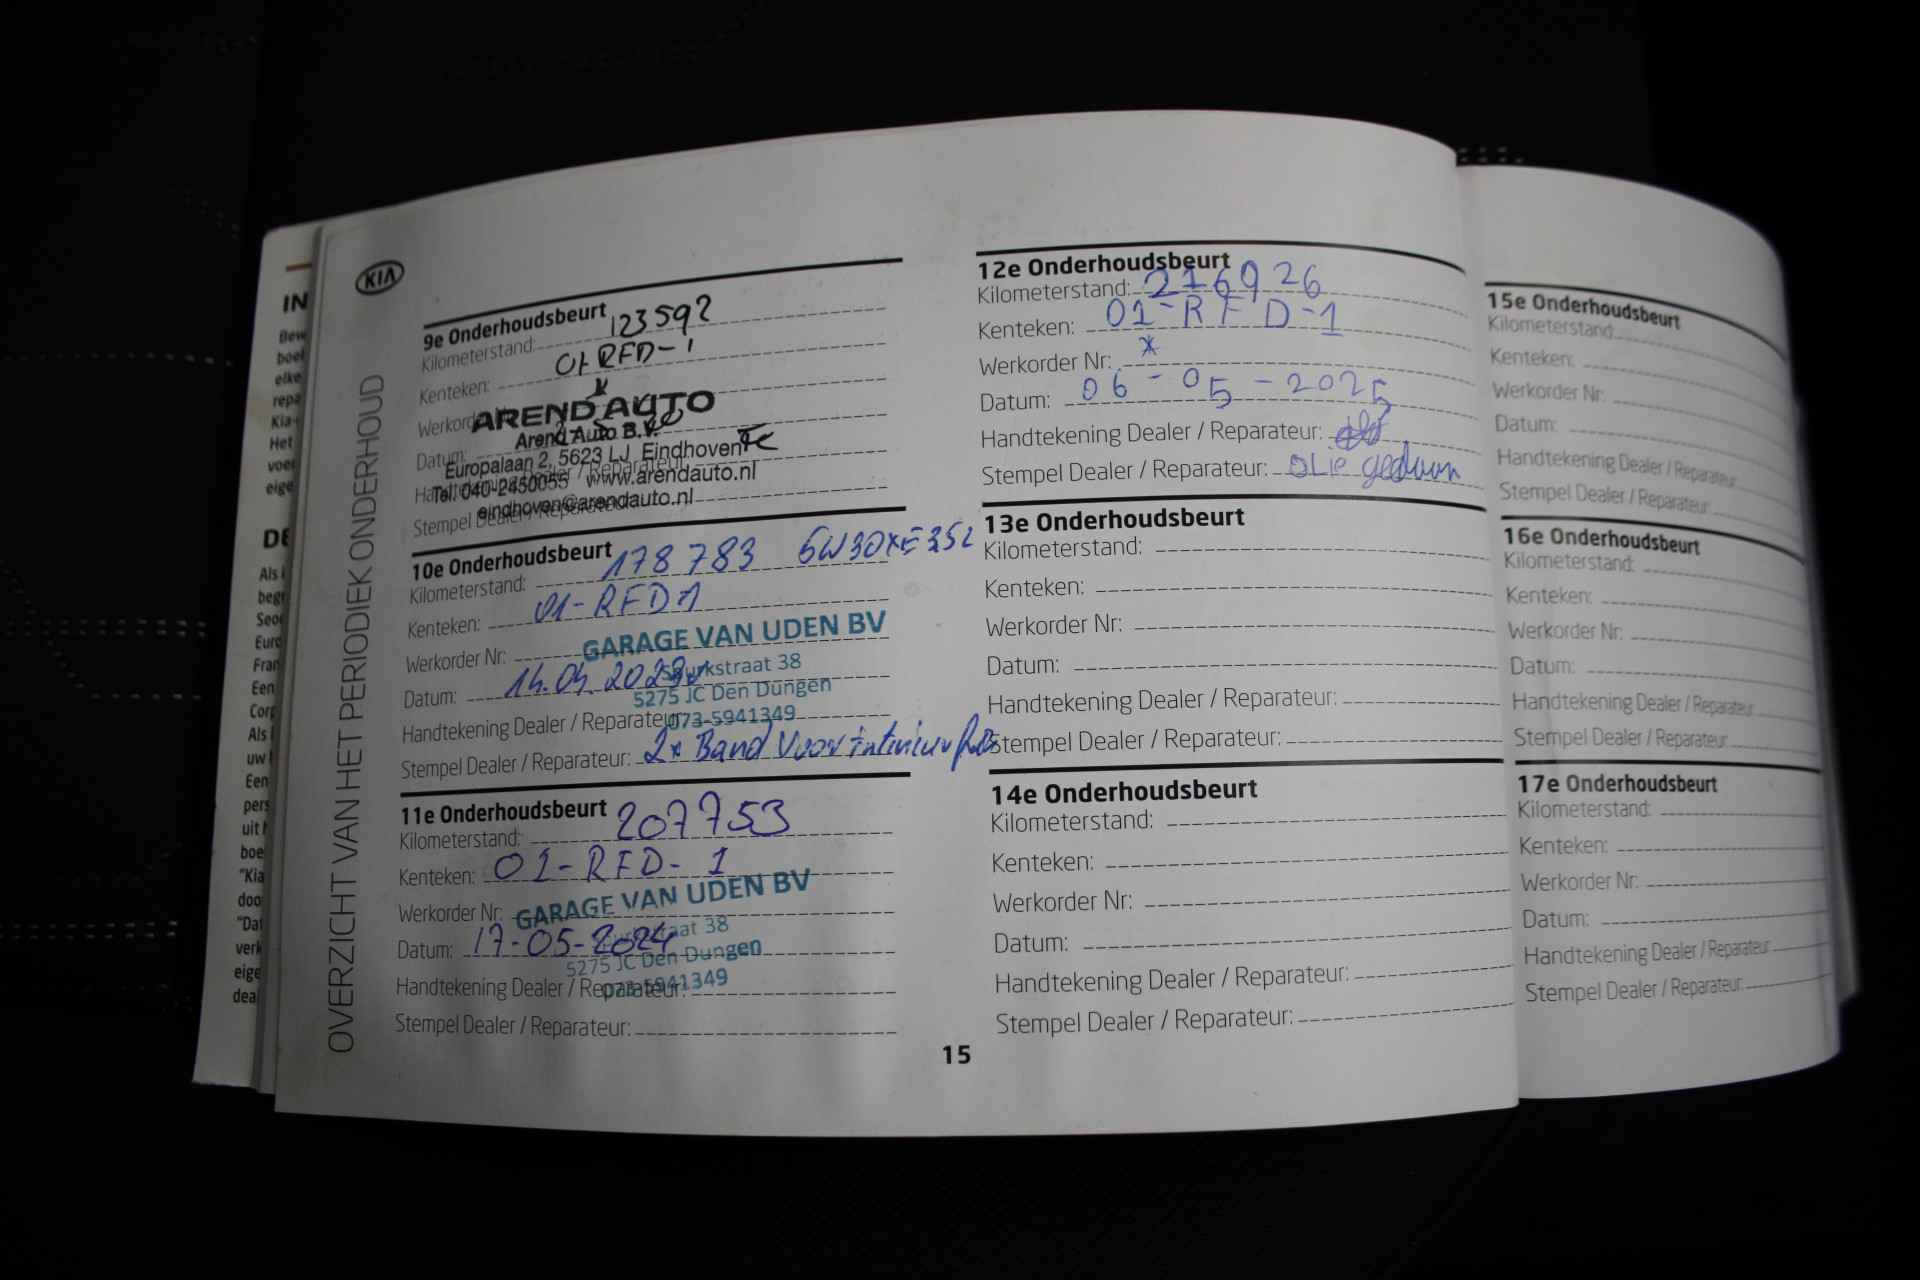 KIA
OVERZICHT VAN HET PERIODIEK ONDERHOUD
9e Onderhoudsbeurt
Kilometerstand: 123592
Kenteken: 01-RFD-1
Werkorder Nr:
AREND AUTO
Arend Auto B.V.
Datum:
Europalaan 2, 5623 LJ Eindhoven
Handtekening Dealer / Reparateur:
Tel. 040-2450055 www.arendauto.nl
eindhoven@arendauto.nl
Stempel Dealer / Reparateur:
10e Onderhoudsbeurt
Kilometerstand: 178783 5W30
Kenteken: 01-RFD1
Werkorder Nr:
GARAGE VAN UDEN BV
38
Datum: 14.04.2023
5275 JC Den Dungen
Handtekening Dealer / Reparateur:
073-5941349
Stempel Dealer / Reparateur: 2x Band voor interieur
11e Onderhoudsbeurt
Kilometerstand: 207753
Kenteken: 01-RFD-1
Werkorder Nr:
GARAGE VAN UDEN BV
38
Datum: 17-05-2024
5275 JC Den Dungen
Handtekening Dealer / Reparateur:
073-5941349
Stempel Dealer / Reparateur:
12e Onderhoudsbeurt
Kilometerstand: 216926
Kenteken: 01-RFD-1
Werkorder Nr: *
Datum: 06-05-2025
Handtekening Dealer / Reparateur:
Stempel Dealer / Reparateur: OLie gedaan
13e Onderhoudsbeurt
Kilometerstand:
Kenteken:
Werkorder Nr:
Datum:
Handtekening Dealer / Reparateur:
Stempel Dealer / Reparateur:
14e Onderhoudsbeurt
Kilometerstand:
Kenteken:
Werkorder Nr:
Datum:
Handtekening Dealer / Reparateur:
Stempel Dealer / Reparateur:
15
15e Onderhoudsbeurt
Kilometerstand:
Kenteken:
Werkorder Nr:
Datum:
Handtekening Dealer / Reparateur:
Stempel Dealer / Reparateur:
16e Onderhoudsbeurt
Kilometerstand:
Kenteken:
Werkorder Nr:
Datum:
Handtekening Dealer / Reparateur:
Stempel Dealer / Reparateur:
17e Onderhoudsbeurt
Kilometerstand:
Kenteken:
Werkorder Nr:
Datum:
Handtekening Dealer / Reparateur:
Stempel Dealer / Reparateur: